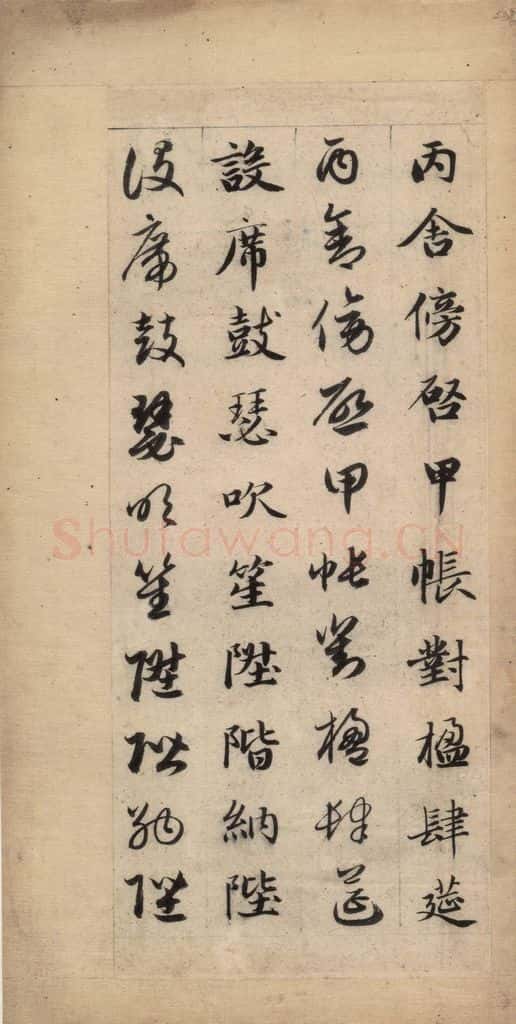 丙舍傍啓甲帳對楹肆莚
丙舍傍啓甲帳對楹肆莚
設席鼓瑟吹笙陞階納陛
設席鼓瑟吹笙陞階納陛
Shufawang.CN